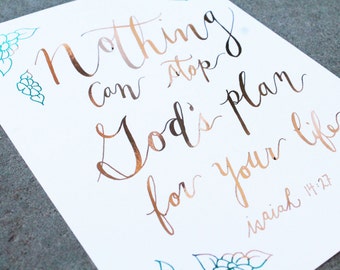 Nothing
can stop
God's plan
for your life
isaiah 14:27